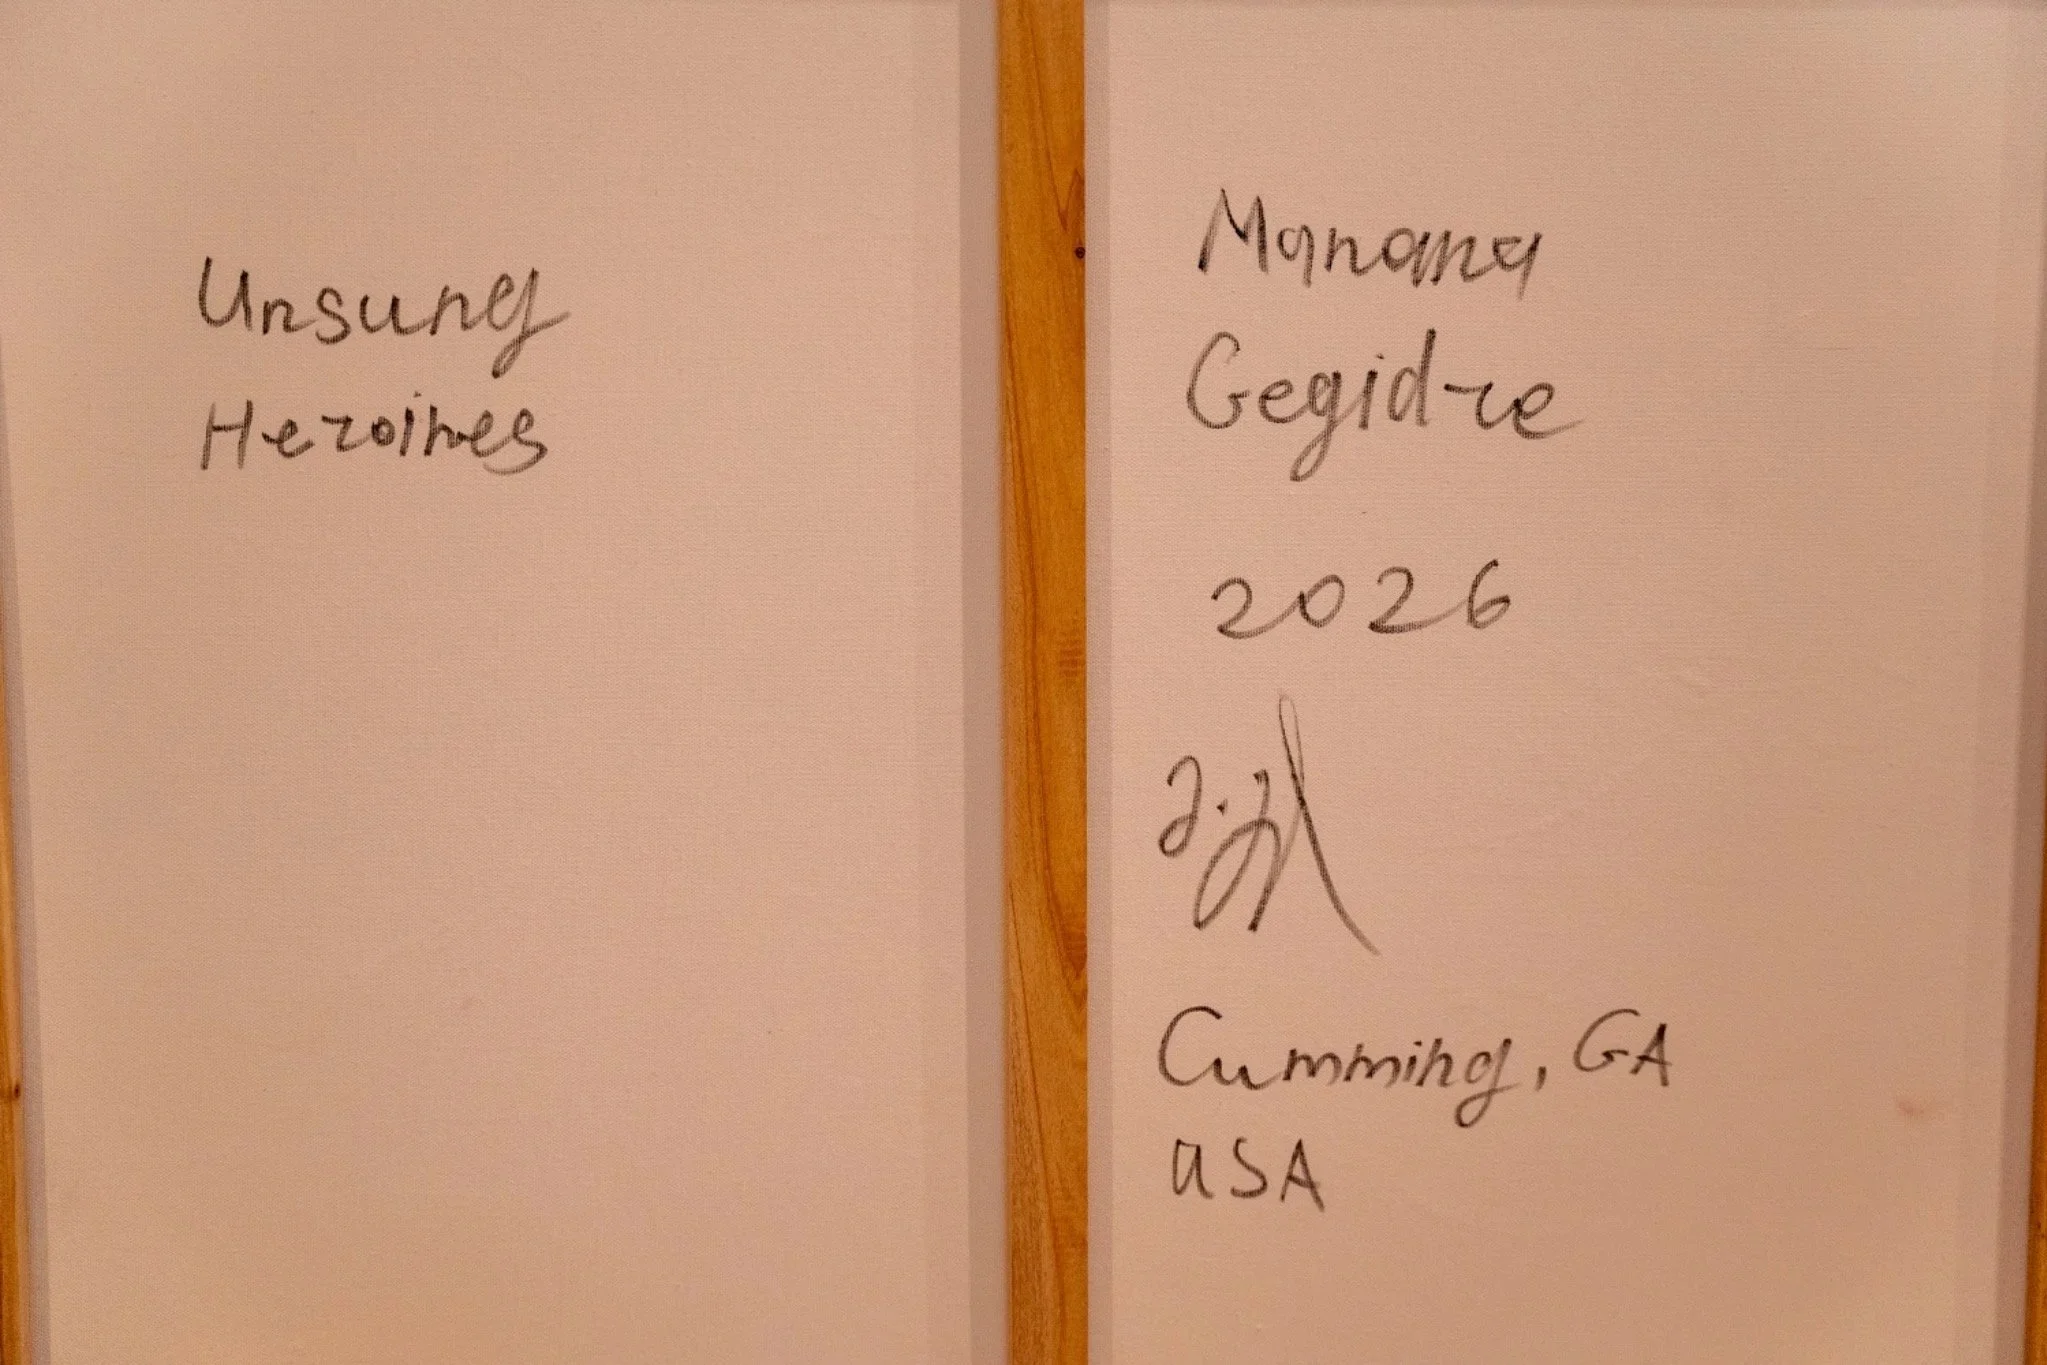 Unsung
Heroines
Manana
Gegidze
2026
Cumming, GA
USA